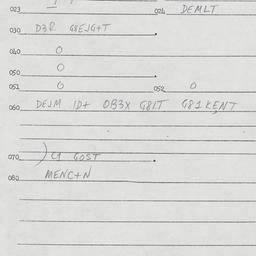 023 024 DEMLT
030 D3R G8EJG+T .
040 0
050 0
051 0 052 0
060 DEJM ID+ OB3X G8IT G81KENT
070 )C1 GOST .
080 MENC+N